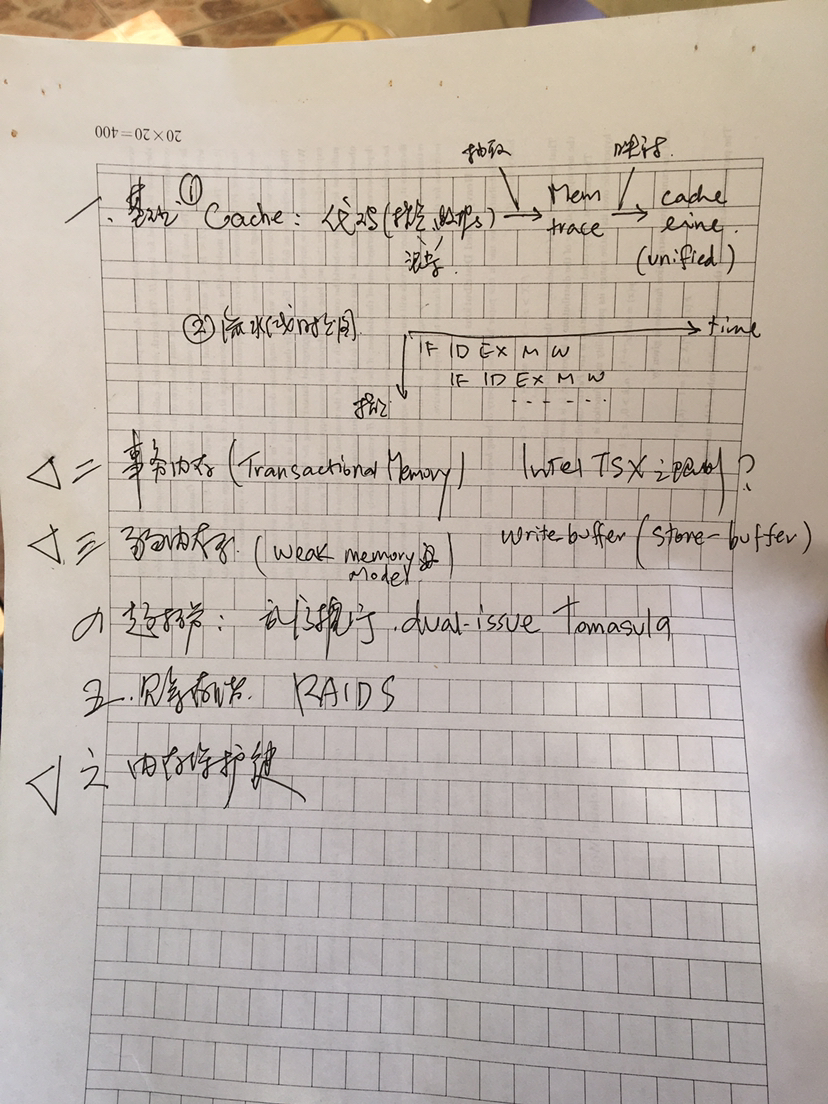 20×20=400
抽取 映射
一. 基础 ① Cache: 代码(指令、) → Mem → cache
trace line
(unified)
② 流水线时空图 → time
IF ID EX M W
IF ID EX M W
指令 ......
△ 二 事务内存 (Transactional Memory) Intel TSX ?
△ 三 弱内存 (weak memory model) write-buffer (store-buffer)
四 超标量: 乱序执行. dual-issue Tomasula
五. 存储. RAIDS
△ 六 内存保护键